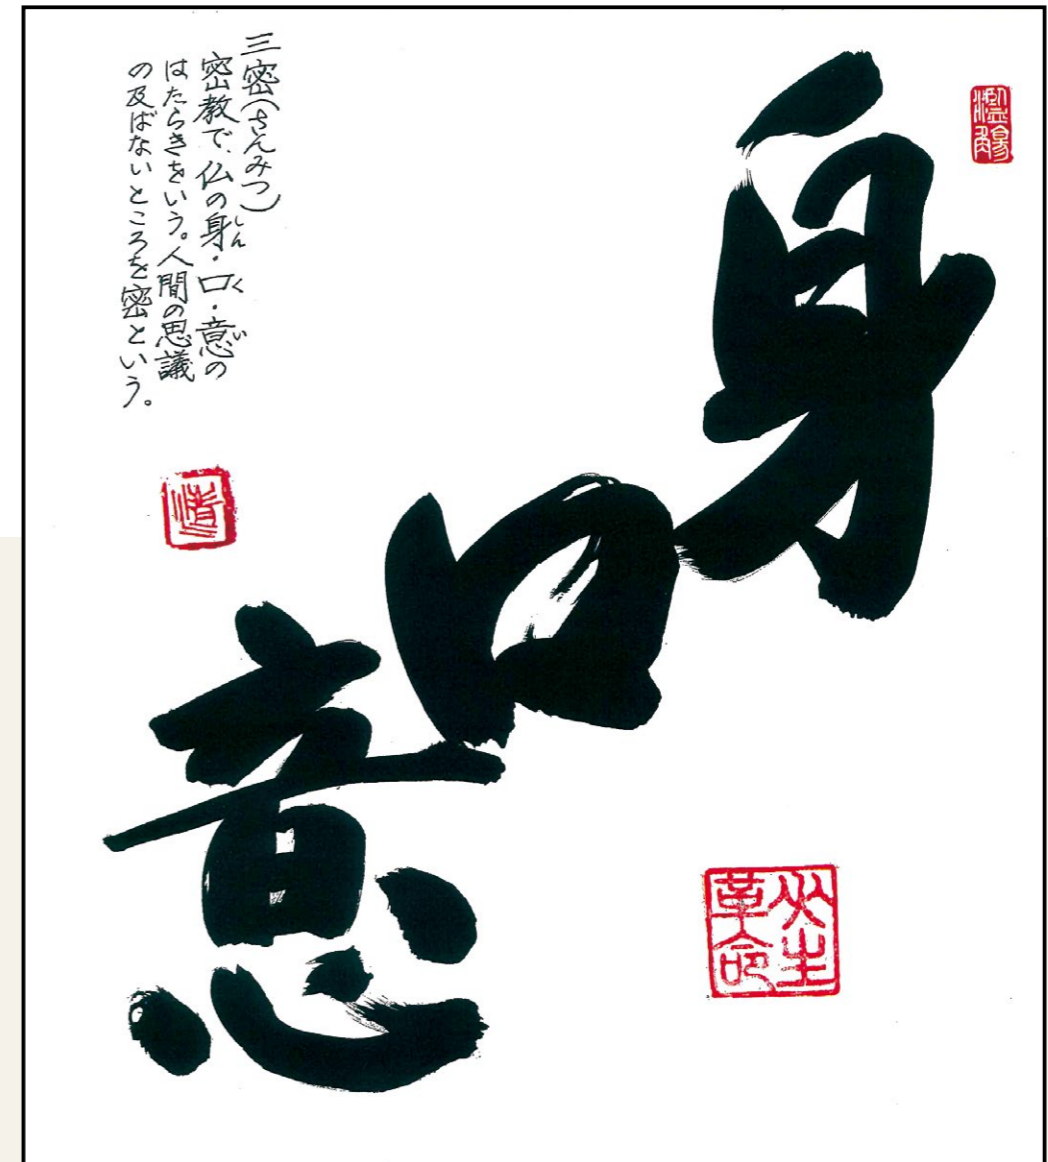 濫觴
身
口
意
革命
三密(さんみつ)
密教で、仏の身・口・意の
しんくい
はたらきをいう。人間の思議
の及ばないところを密という。